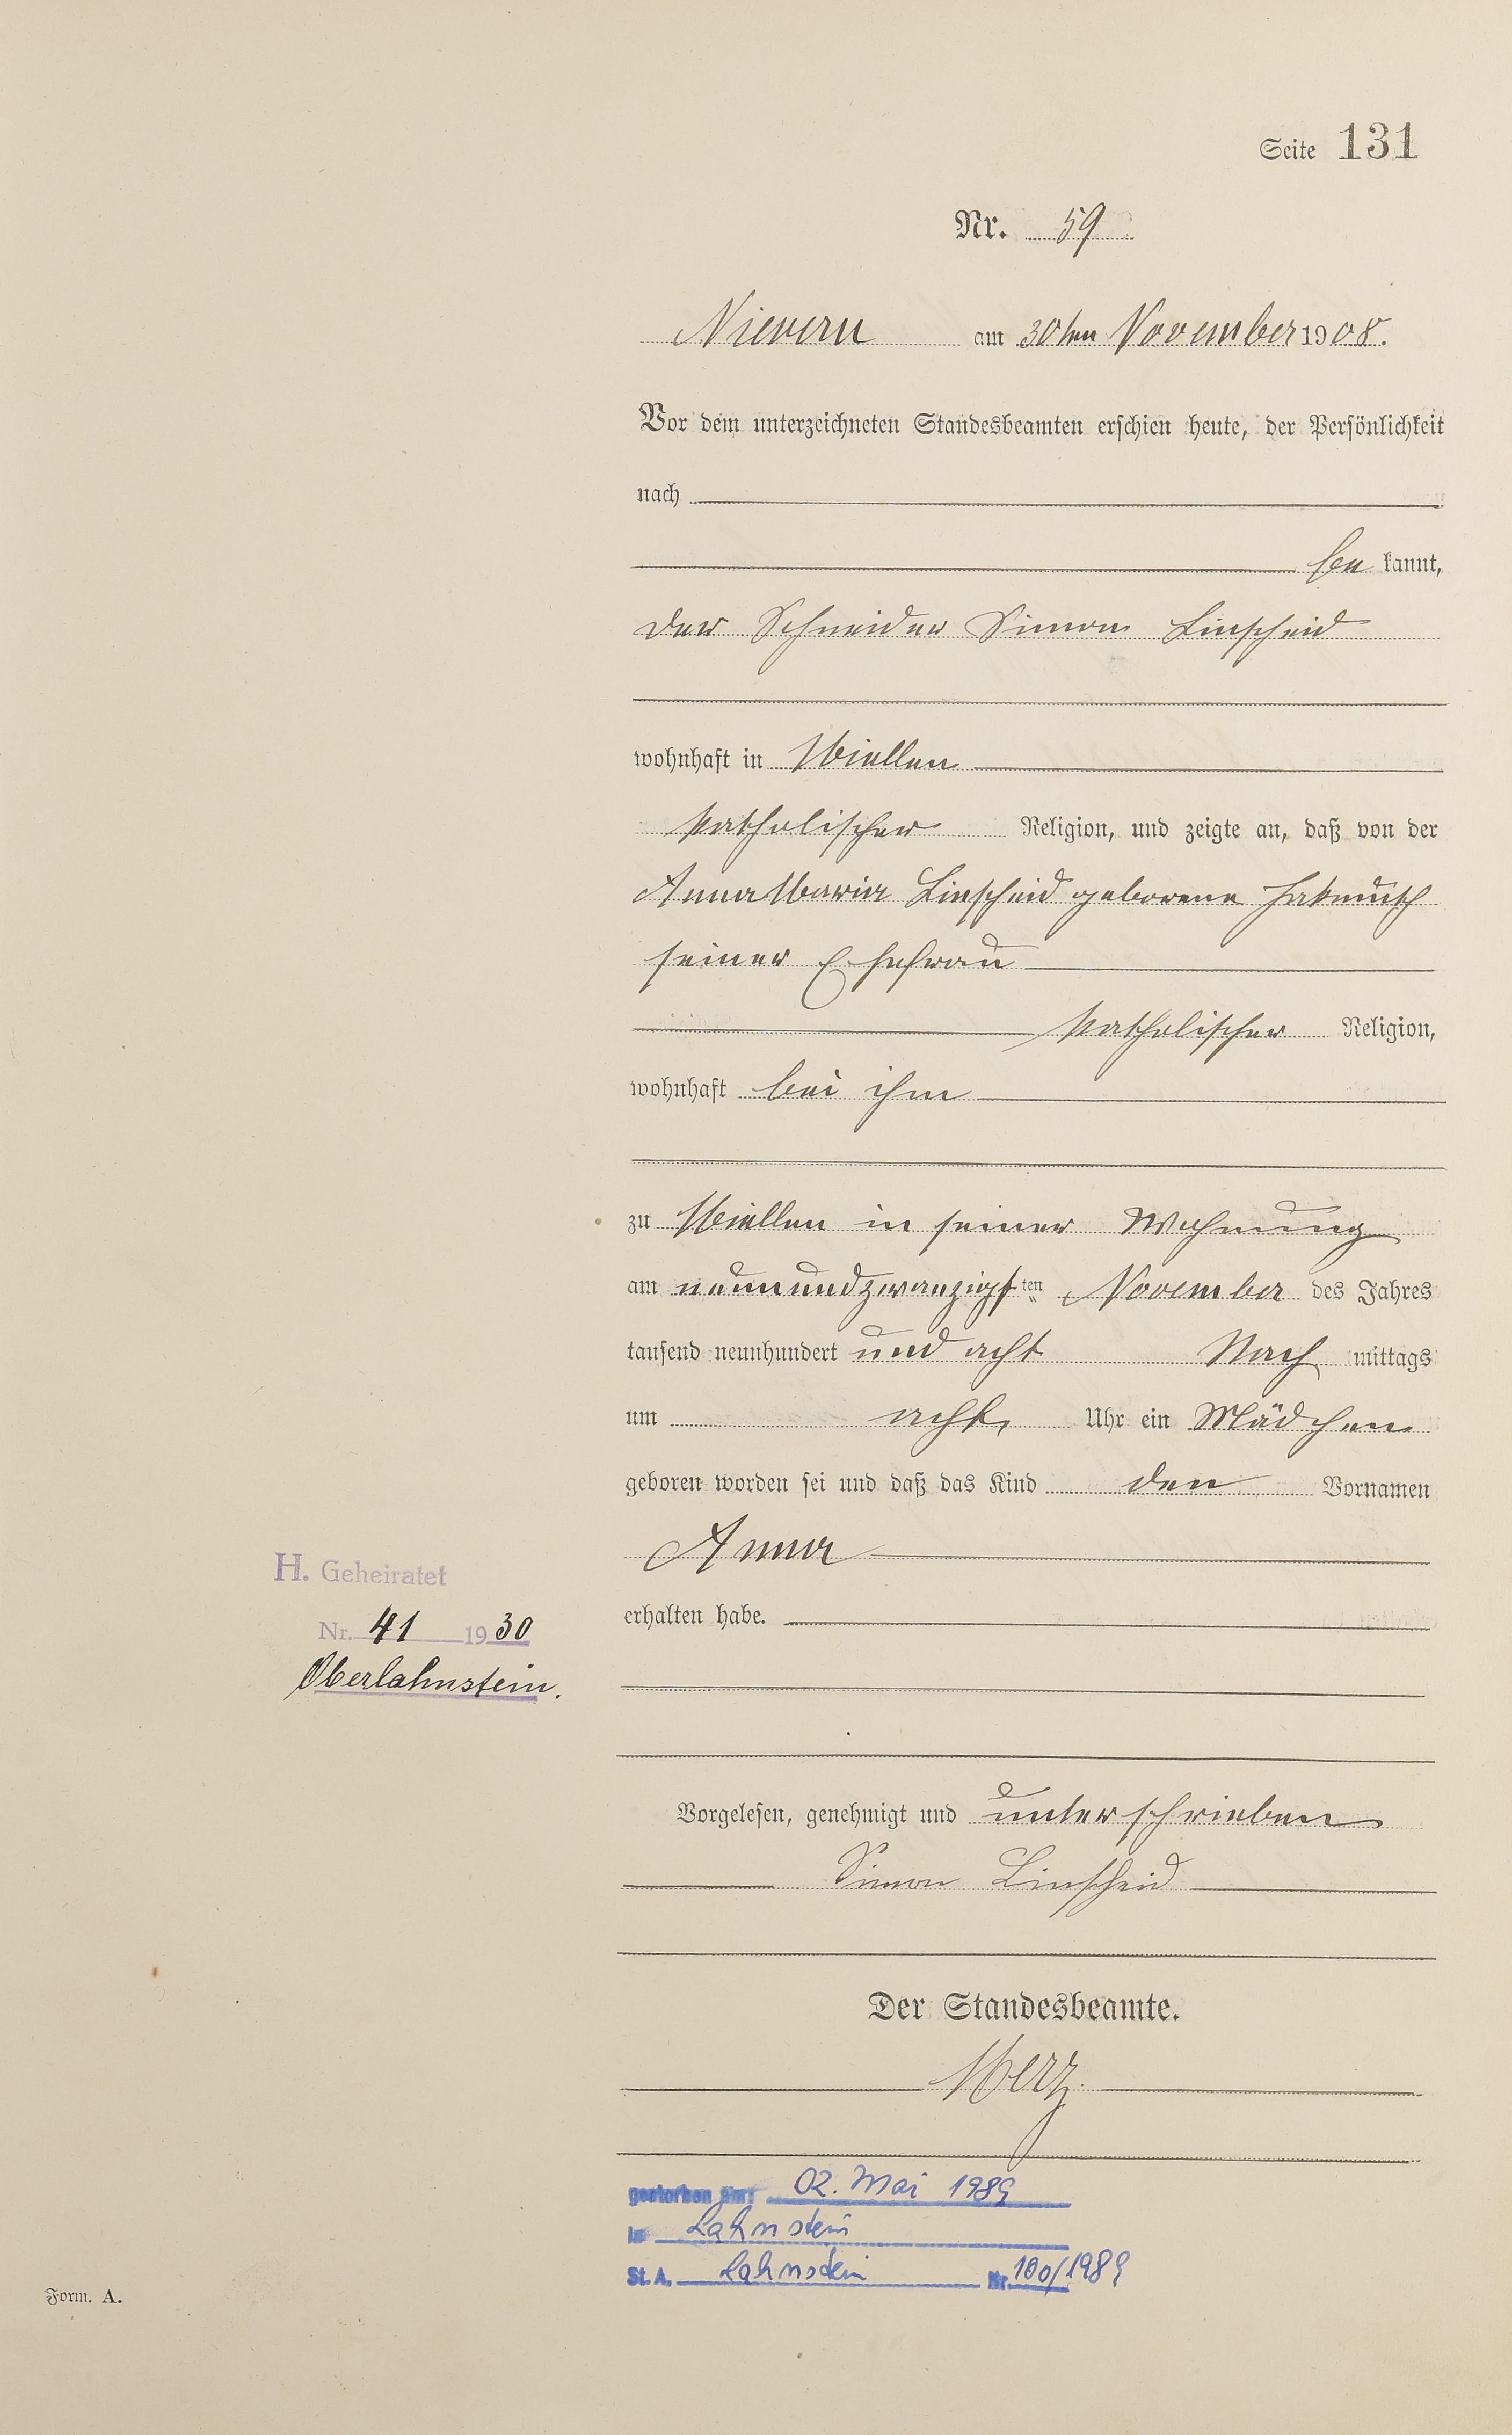 Seite 131
Nr. 59
Nievern am 30ten November 1908.
Vor dem unterzeichneten Standesbeamten erschien heute, der Persönlichkeit
nach
be kannt,
der Schneider Simon Linscheid
wohnhaft in Miellen
katholischer Religion, und zeigte an, daß von der
Anna Maria Linscheid geborene
seiner Ehefrau
katholischer Religion,
wohnhaft bei ihm
zu Miellen in seiner Wohnung
am neunundzwanzigsten November des Jahres
tausend neunhundert und acht Nach mittags
um acht Uhr ein Mädchen
geboren worden sei und daß das Kind den Vornamen
Anna
H. Geheiratet
erhalten habe.
Nr. 41 1930
Oberlahnstein.
Vorgelesen, genehmigt und unterschrieben
Simon Linscheid
Der Standesbeamte.
Merz
gestorben am: 02. Mai 1989
in Lahnstein
St. A. Lahnstein Nr. 100/1989
Form. A.